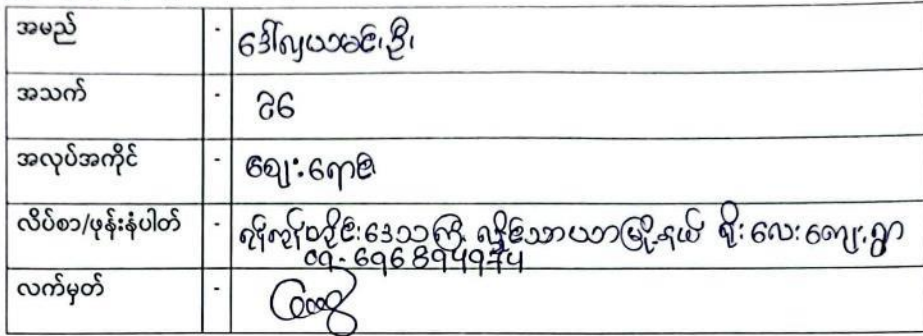 အမည် - ဒေါ်လှယမင်းဦး
အသက် - ၃၆
အလုပ်အကိုင် - ဈေးရောင်း
လိပ်စာ/ဖုန်းနံပါတ် - ရန်ကုန်တိုင်းဒေသကြီး လှိုင်သာယာမြို့နယ် ရိုးလေးကျေးရွာ
၀၅-၆၅၆၆၈၉၄၅၇၄၅
လက်မှတ် -